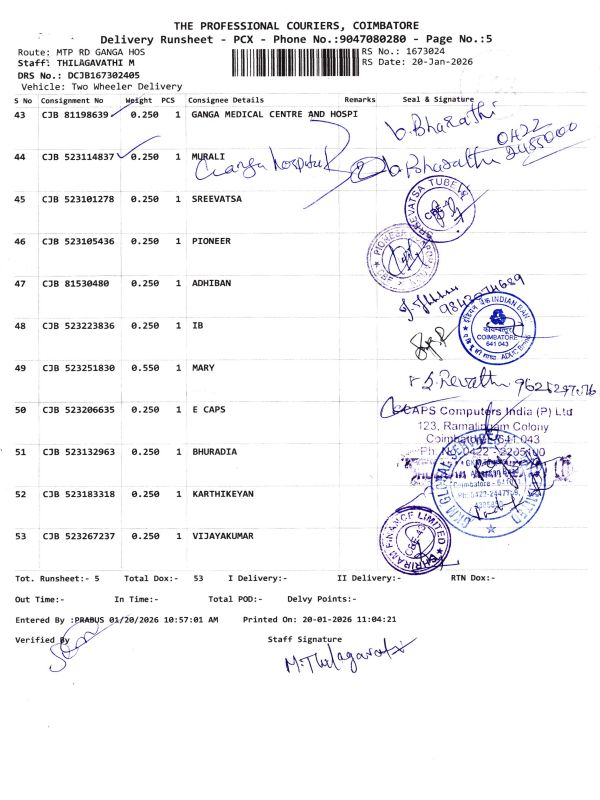 THE PROFESSIONAL COURIERS, COIMBATORE
Delivery Runsheet - PCX - Phone No.:9047080280 - Page No.:5
Route: MTP RD GANGA HOS
RS No.: 1673024
Staff: THILAGAVATHI M
RS Date: 20-Jan-2026
DRS No.: DCJB167302405
Vehicle: Two Wheeler Delivery
S No Consignment No Weight PCS Consignee Details Remarks Seal & Signature
43 CJB 81198639 0.250 1 GANGA MEDICAL CENTRE AND HOSPI
b. Bharathi
44 CJB 523114837 0.250 1 MURALI
Ganga hospital
b. Bharathi 0422
2455000
45 CJB 523101278 0.250 1 SREEVATSA
SREEVATSA
46 CJB 523105436 0.250 1 PIONEER
47 CJB 81530480 0.250 1 ADHIBAN
48 CJB 523223836 0.250 1 IB
INDIAN BANK
COIMBATORE
641 043
49 CJB 523251830 0.550 1 MARY
S. Revathi
50 CJB 523206635 0.250 1 E CAPS
CAPS Computers India (P) Ltd
123, Ramalingam Colony
Coimbatore 641 043
Ph. No.0422 -
51 CJB 523132963 0.250 1 BHURADIA
52 CJB 523183318 0.250 1 KARTHIKEYAN
53 CJB 523267237 0.250 1 VIJAYAKUMAR
SHRIRAM FINANCE LIMITED
Tot. Runsheet:- 5 Total Dox:- 53 I Delivery:- II Delivery:- RTN Dox:-
Out Time:- In Time:- Total POD:- Delvy Points:-
Entered By :PRABUS 01/20/2026 10:57:01 AM Printed On: 20-01-2026 11:04:21
Verified By Staff Signature
M. Thilagavathi